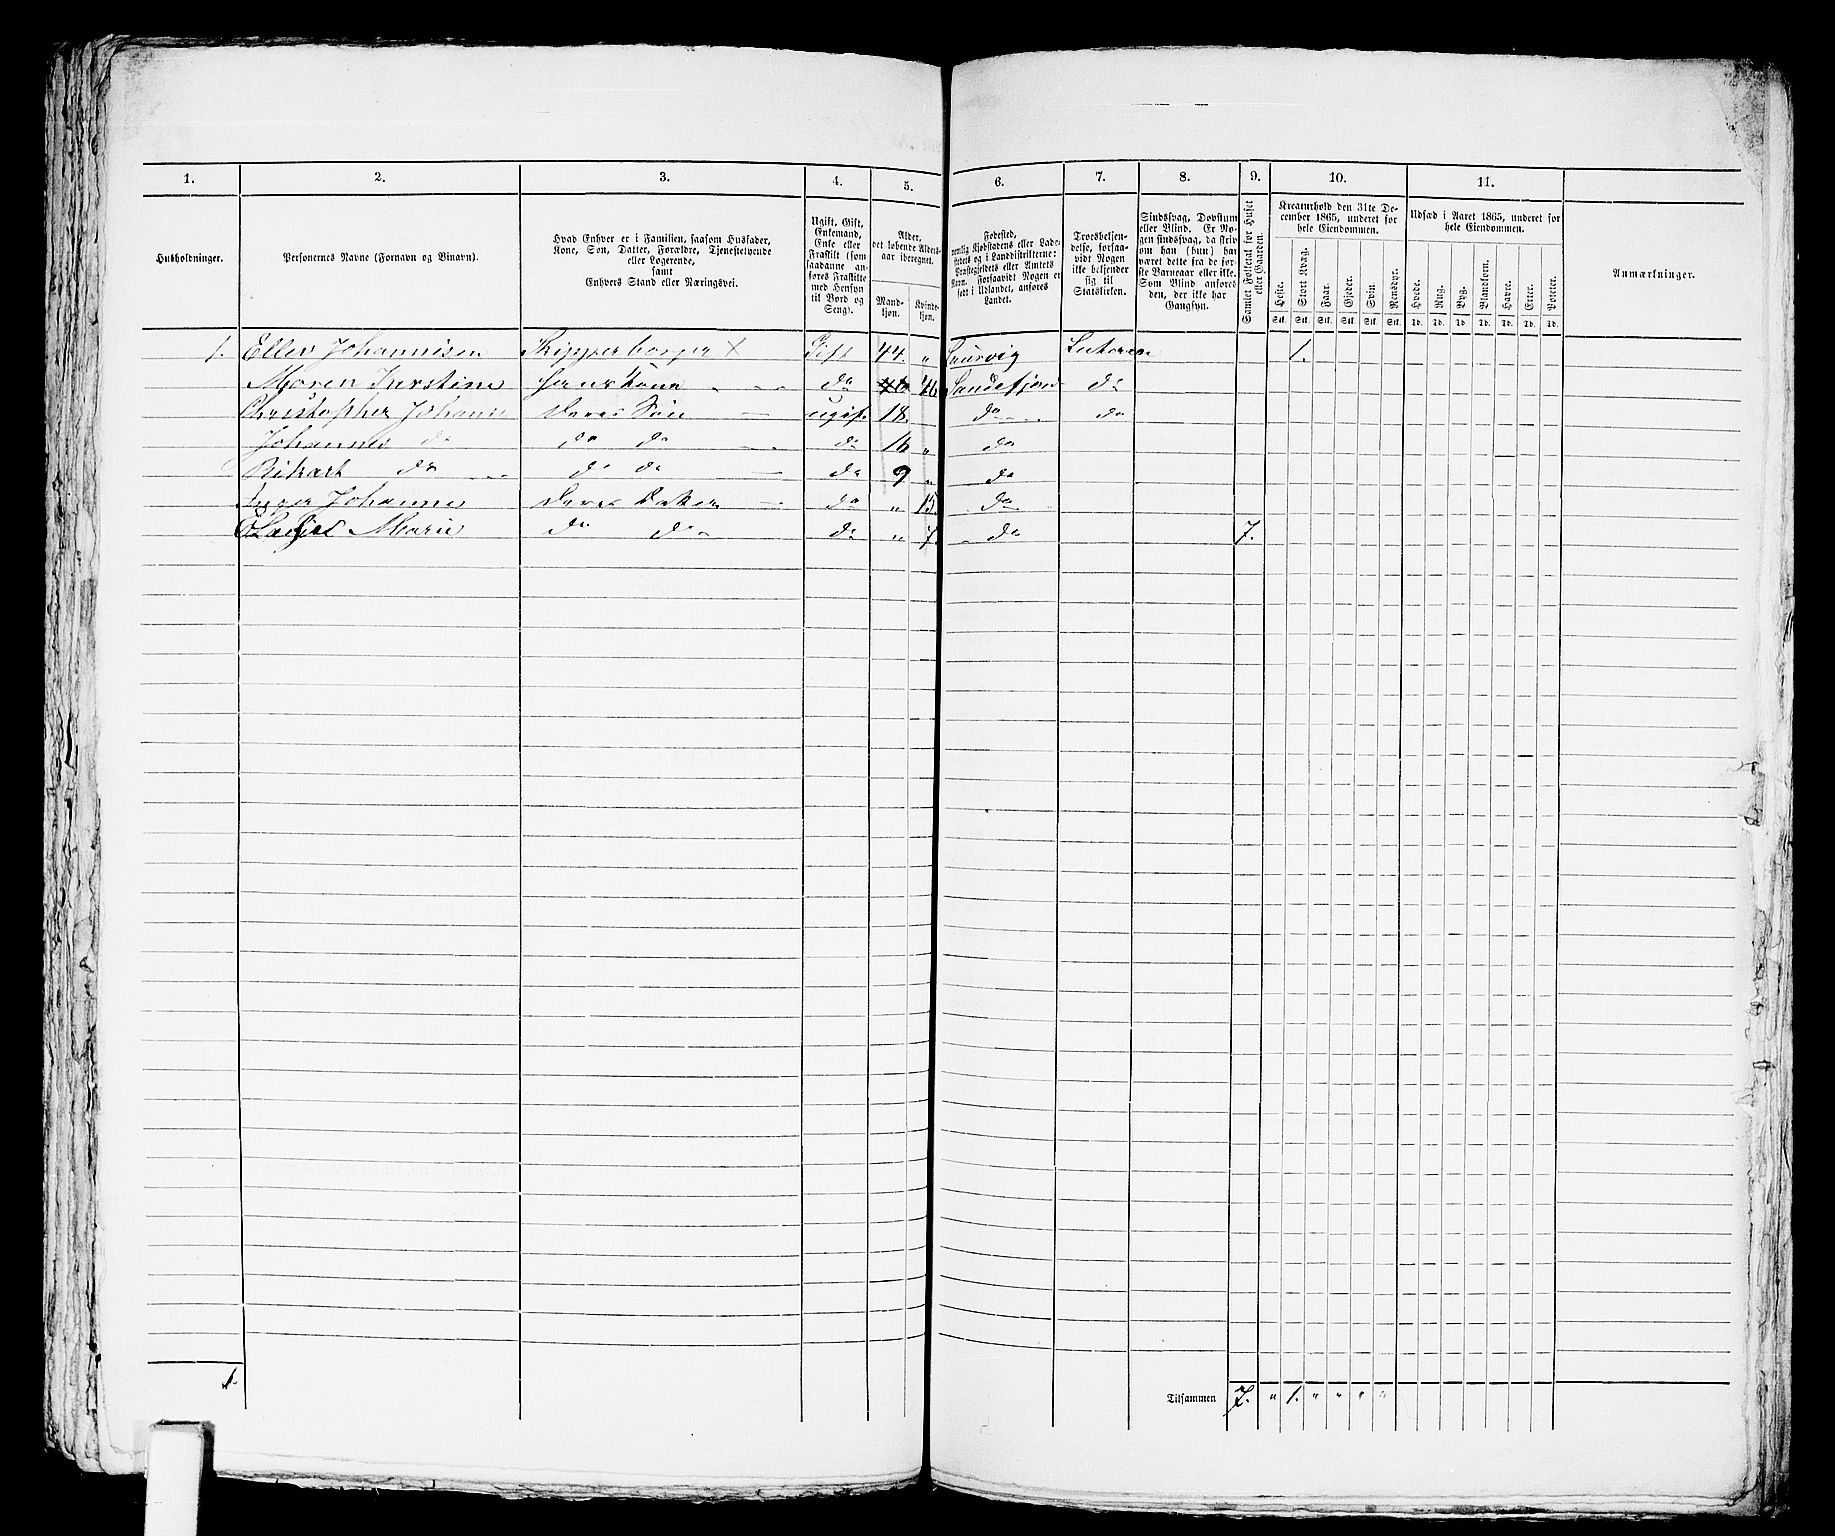 1. 2. 3. 4. 5. 6. 7. 8. 9. 10. 11.
Husholdninger.
Personernes Navne (Fornavn og Binavn).
Hvad Enhver er i Familien, saasom Husfader,
Kone, Søn, Datter, Forældre, Tjenestetyende
eller Logerende,
samt
Enhvers Stand eller Næringsvei.
Ugift, Gift,
Enkemand,
Enke eller
Fraskilt (som
saadanne an-
føres Fraskilte
med Hensyn
til Bord og
Seng).
Alder,
det løbende Alders-
aar iberegnet.
Mand-
kjøn.
Kvinde-
kjøn.
Fødested,
nemlig Kjøbstadens eller Lade-
stedets og i Landdistrikterne:
Præstegjeldets eller Amtets
Navn. Forsaavidt Nogen er
født i Udlandet, anføres
Landet.
Troesbekjen-
delse, forsaa-
vidt Nogen
ikke bekjender
sig til
Statskirken.
Sindssvag, Døvstum
eller Blind. Er No-
gen sindssvag, da skriv
om han (hun) har
været dette fra de før-
ste Barneaar eller ikke.
Som Blind anføres
den, der ikke har
Gangsyn.
Samlet Folketal for Huset
eller Gaarden.
Kreaturhold den 31te De-
cember 1865, underet for
hele Eiendommen.
Heste. Stort Kvæg. Faar. Gjeder. Svin. Rensdyr.
Stk. Stk. Stk. Stk. Stk. Stk.
Udsæd i Aaret 1865, underet for
hele Eiendommen.
Hvede. Rug. Byg. Blandkorn. Havre. Erter. Poteter.
Td. Td. Td. Td. Td. Td. Td.
Anmærkninger.
1. Ellev Johannisen Skipperborger X Gift 44. " Laurvig Luteran 1.
Maren Kirstine hans Kone do 46 Sandefjord do
Christopher Johanne deres Søn ugif. 18. do do
Johannes do do do do 16 " do
Rikart do do do do 9 " do
Inger Johanne deres Datter do " 15. do
Marie do do do " 7. do 7.
1
Tilsammen 7. " 1. " " " "